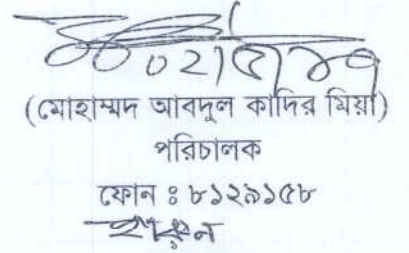 (মোহাম্মদ আবদুল কাদির মিয়া)
পরিচালক
ফোন ঃ ৮১২৯১৫৮